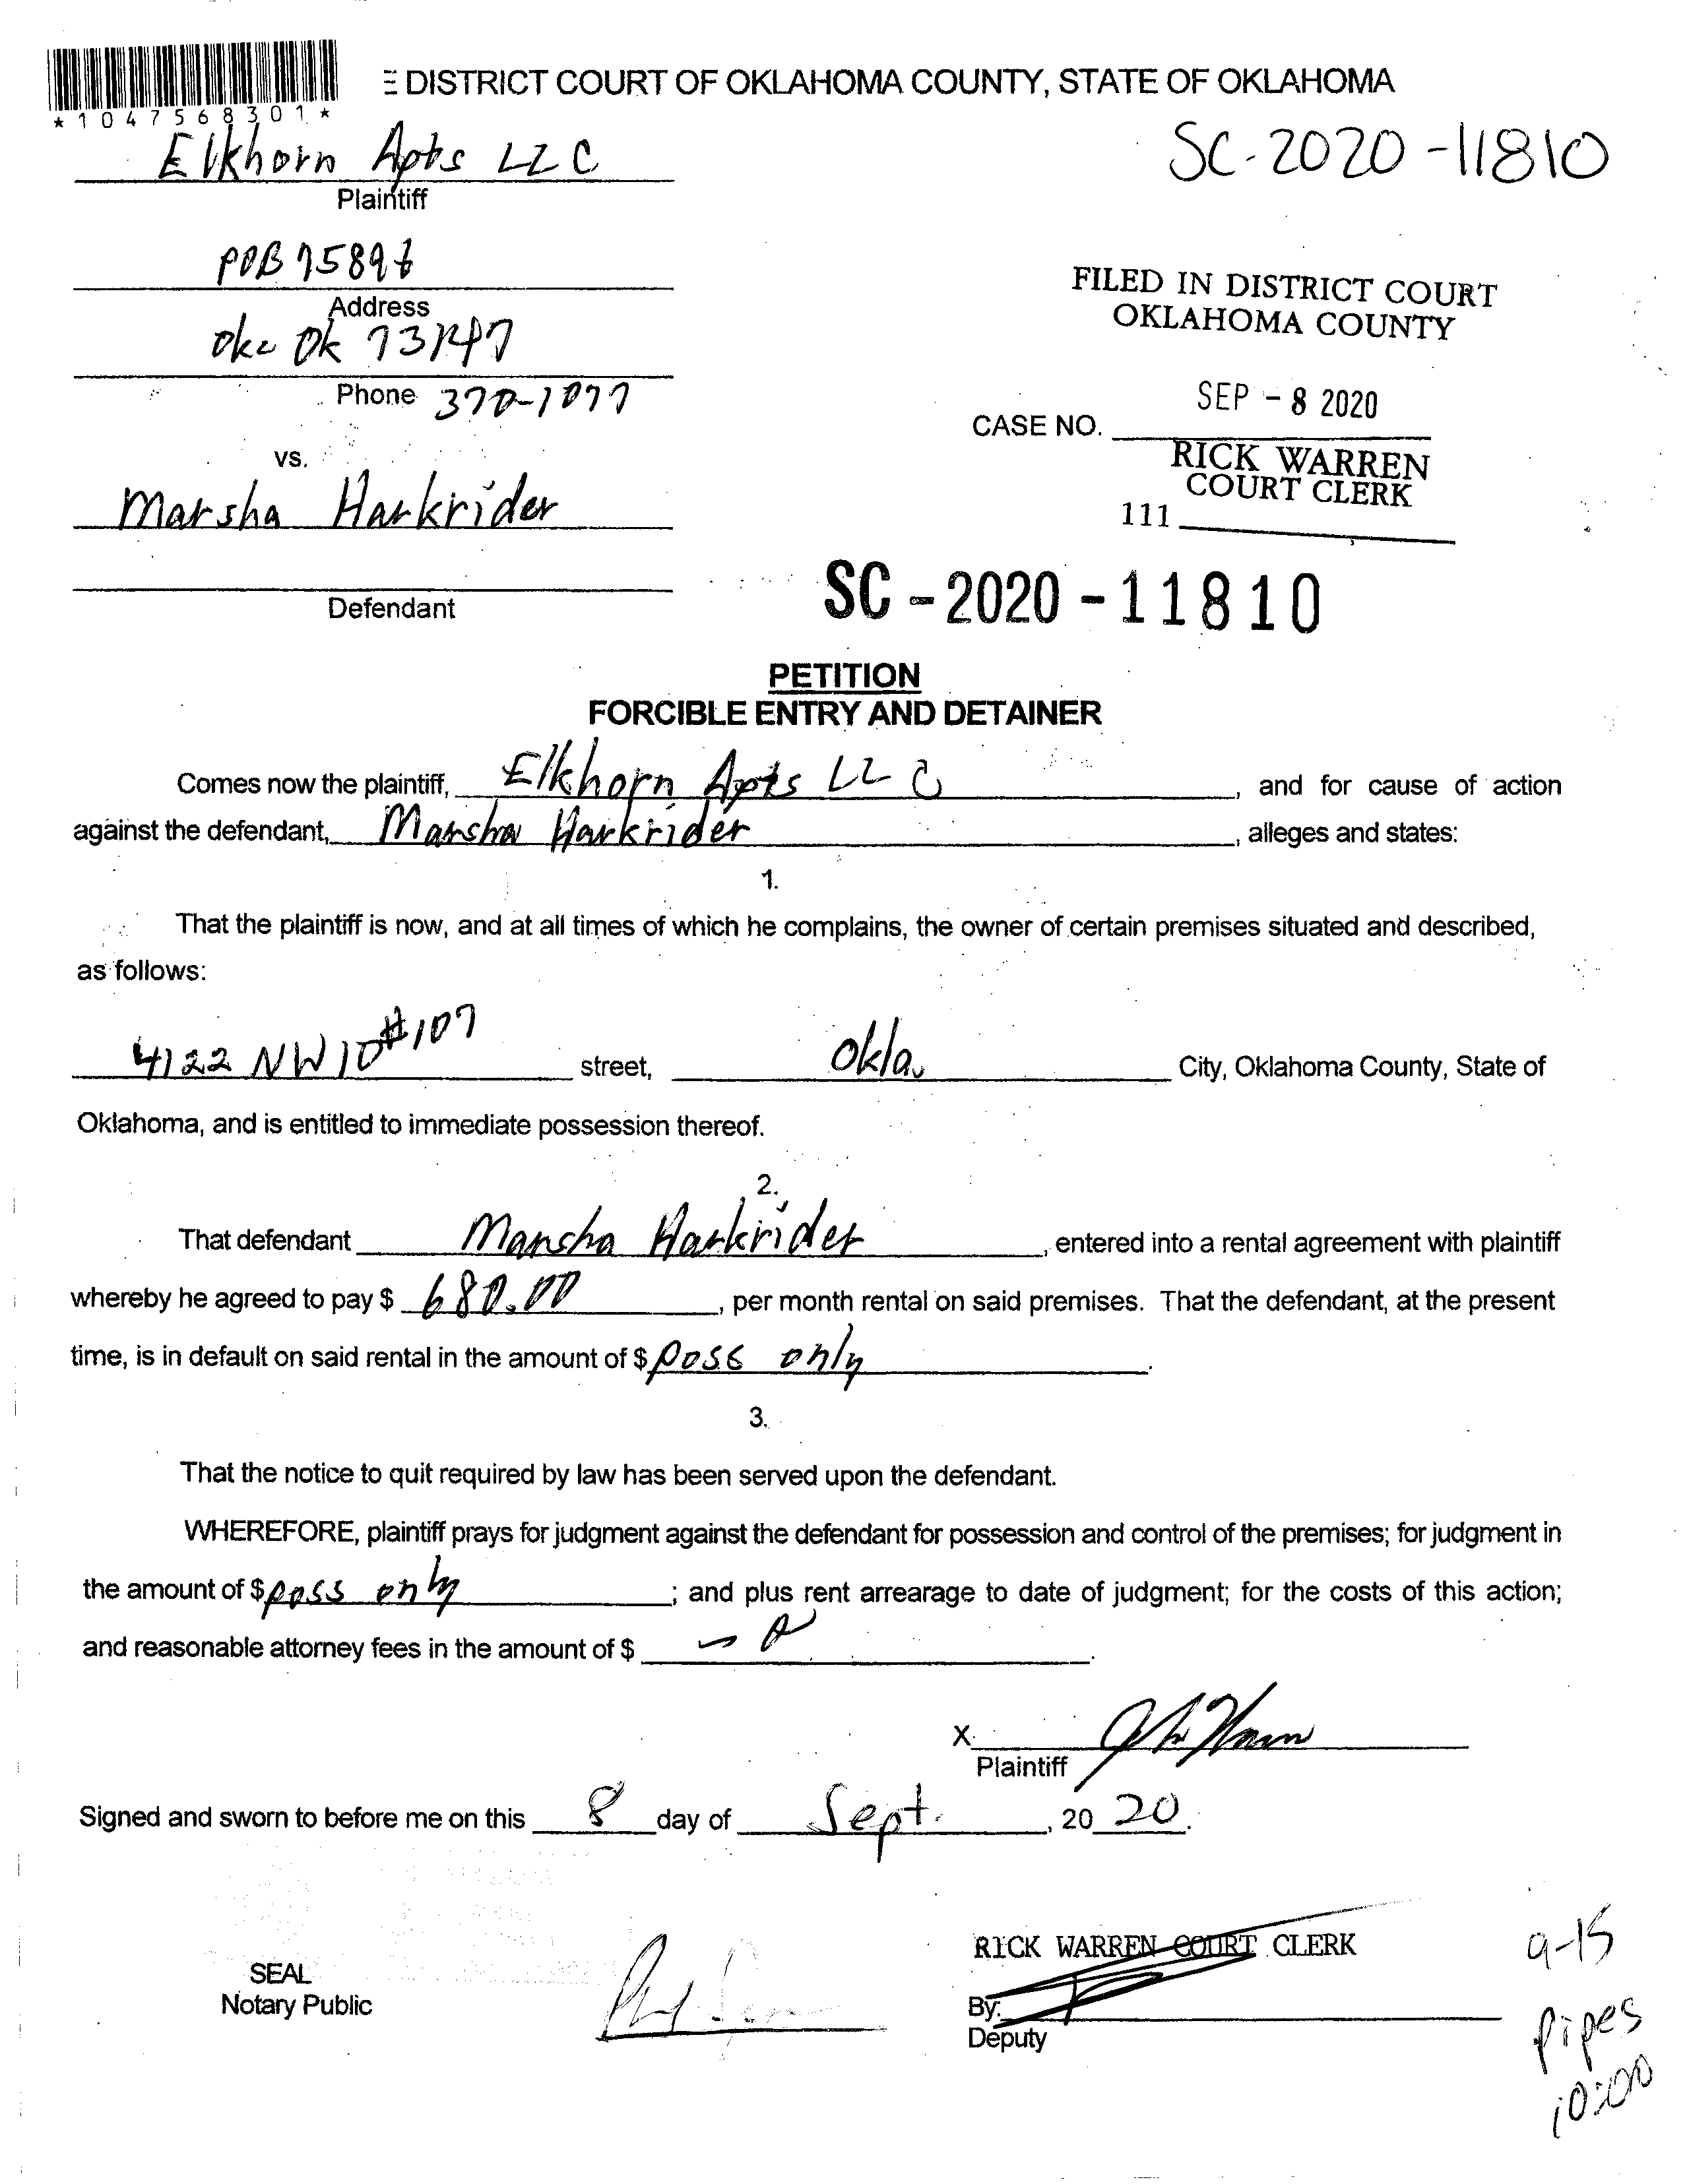 E DISTRICT COURT OF OKLAHOMA COUNTY, STATE OF OKLAHOMA
*1047568301*
Elkhorn Apts LLC
SC-2020-11810
Plaintiff
POB 75896
Address
FILED IN DISTRICT COURT
OKLAHOMA COUNTY
Okc Ok 73147
Phone 370-1077
SEP - 8 2020
CASE NO.
RICK WARREN
COURT CLERK
vs.
111
Marsha Harkrider
Defendant
SC - 2020 - 11810
PETITION
FORCIBLE ENTRY AND DETAINER
Comes now the plaintiff, Elkhorn Apts LLC, and for cause of action
against the defendant, Marsha Harkrider, alleges and states:
1.
That the plaintiff is now, and at all times of which he complains, the owner of certain premises situated and described,
as follows:
4122 NW 10 #107 street, Okla. City, Oklahoma County, State of
Oklahoma, and is entitled to immediate possession thereof.
2.
That defendant Marsha Harkrider, entered into a rental agreement with plaintiff
whereby he agreed to pay $ 680.00, per month rental on said premises. That the defendant, at the present
time, is in default on said rental in the amount of $ poss only.
3.
That the notice to quit required by law has been served upon the defendant.
WHEREFORE, plaintiff prays for judgment against the defendant for possession and control of the premises; for judgment in
the amount of $ poss only; and plus rent arrearage to date of judgment; for the costs of this action;
and reasonable attorney fees in the amount of $
X
Plaintiff
Signed and sworn to before me on this 8 day of Sept., 20 20.
RICK WARREN COURT CLERK
9-15
SEAL
Notary Public
By:
Deputy
Pipes
10:00